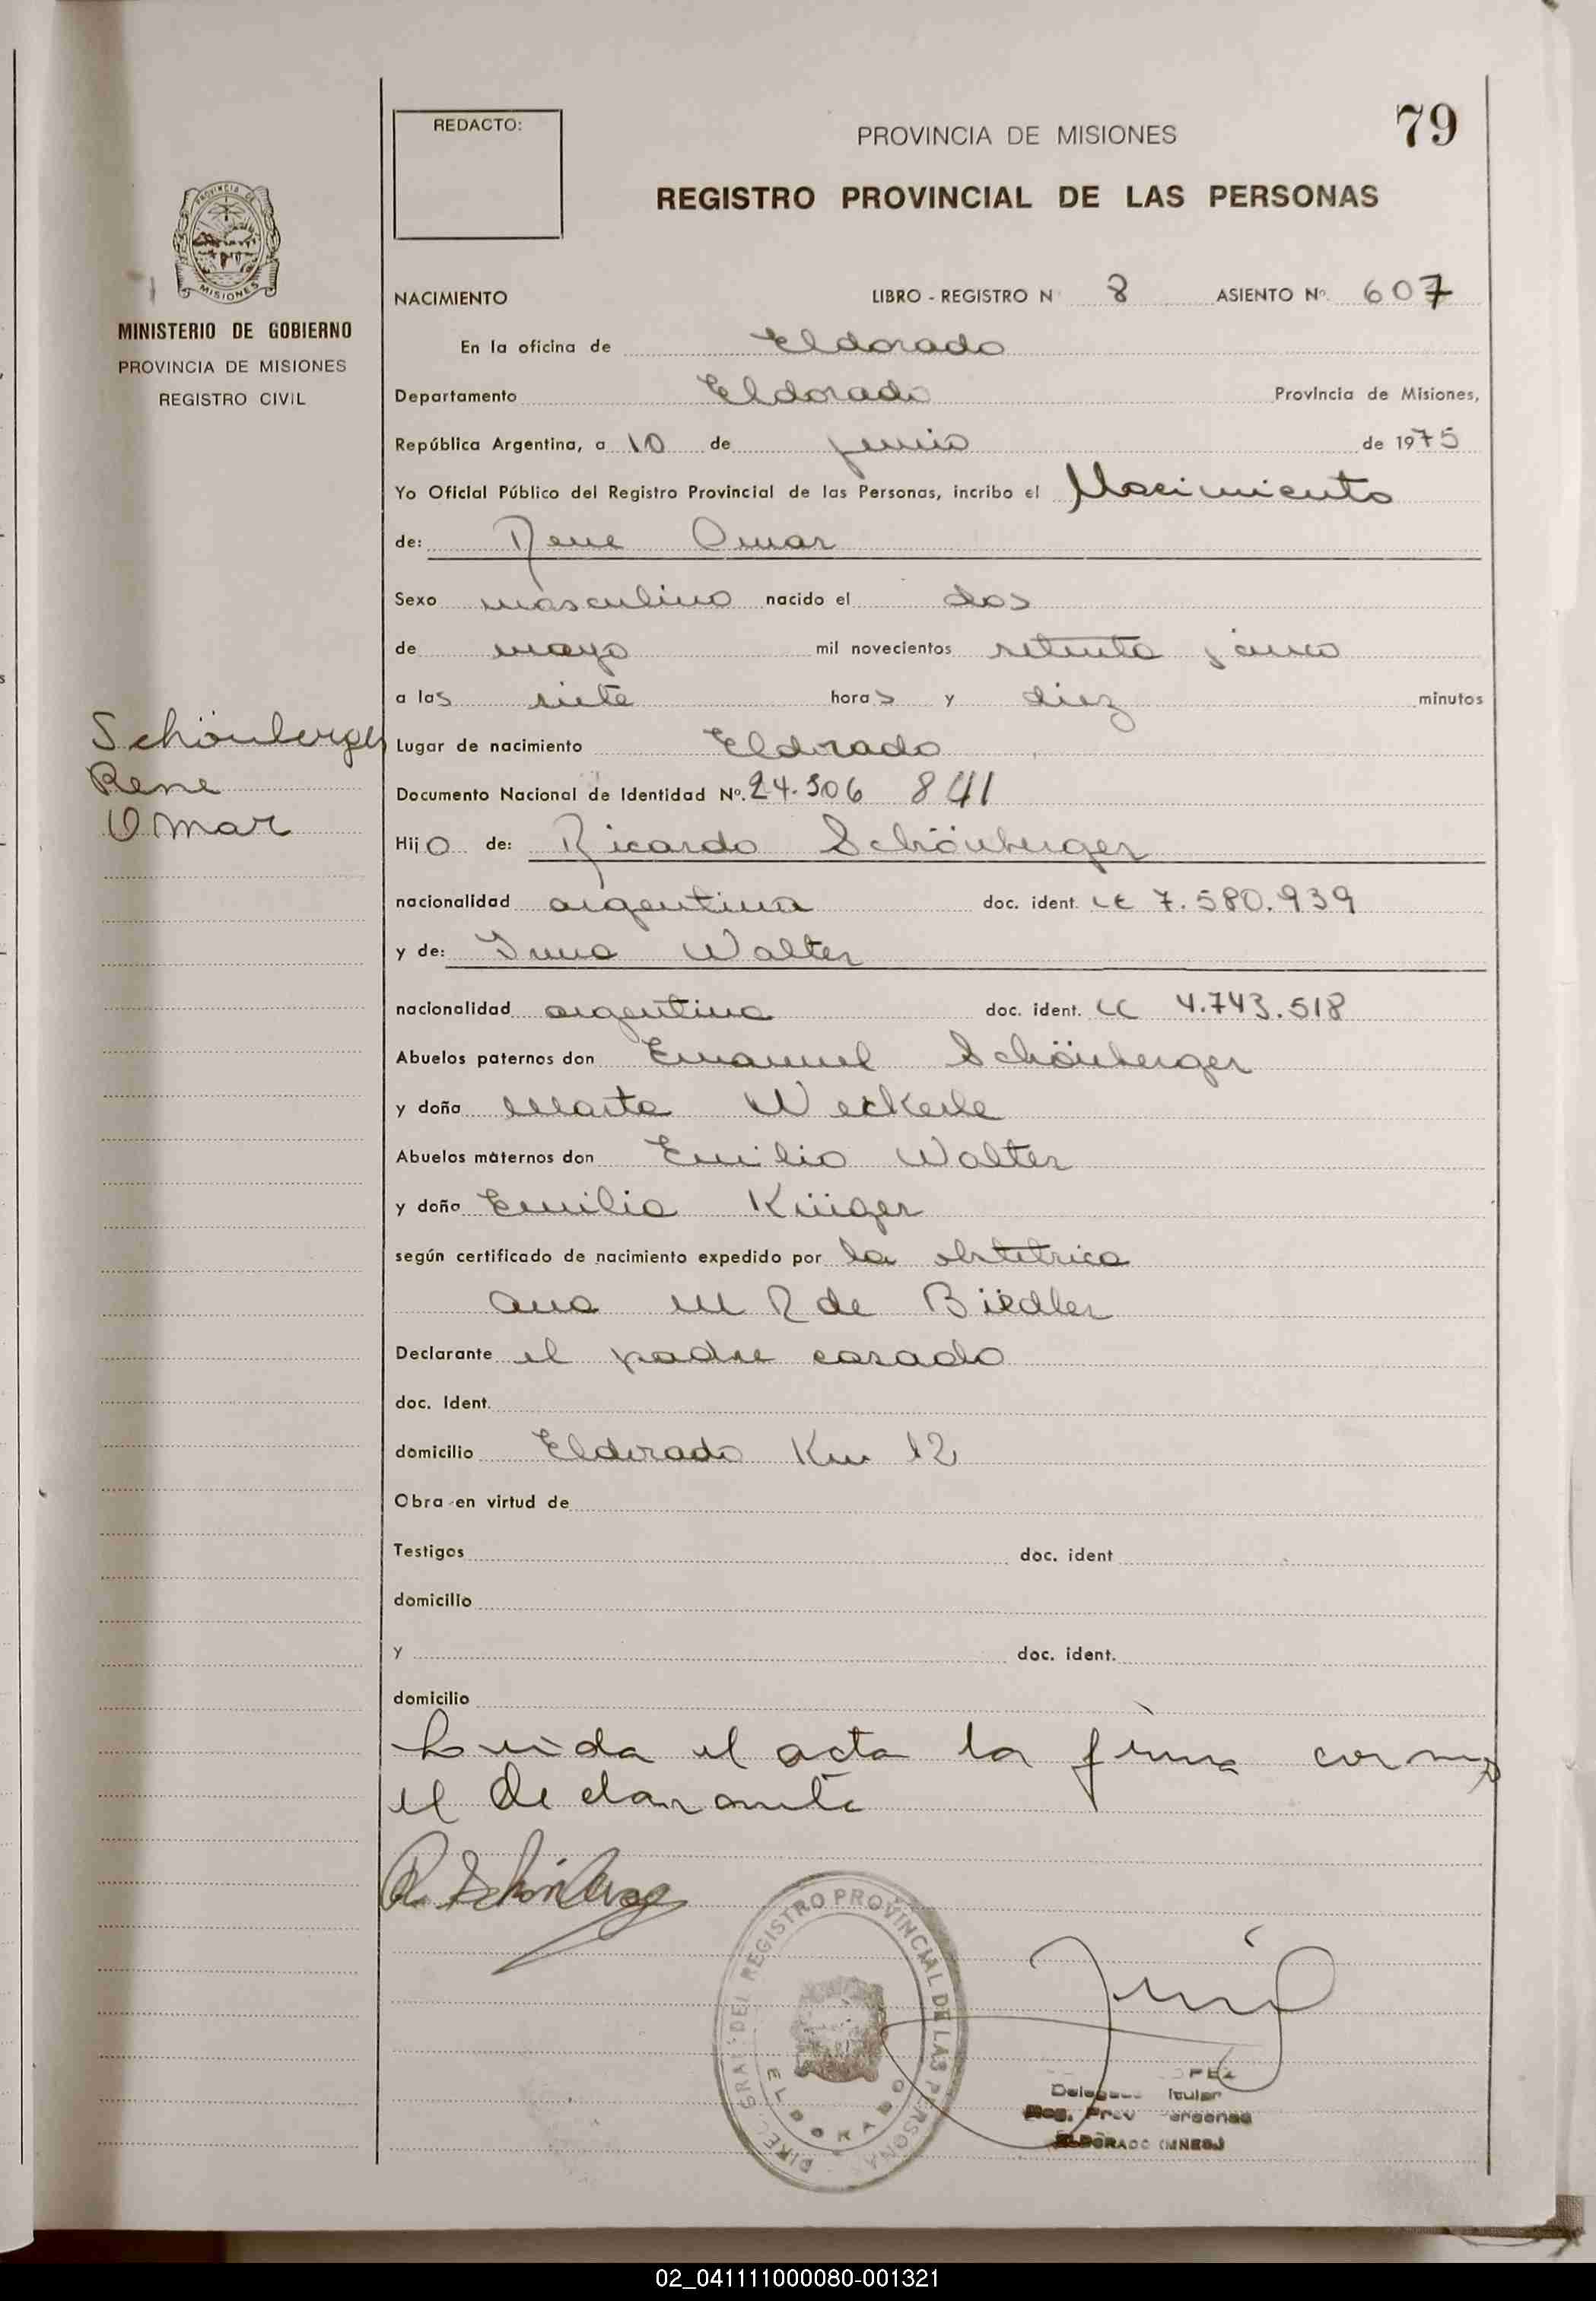 79
REDACTO:
PROVINCIA DE MISIONES
REGISTRO PROVINCIAL DE LAS PERSONAS
PROVINCIA DE
MISIONES
MINISTERIO DE GOBIERNO
PROVINCIA DE MISIONES
REGISTRO CIVIL
NACIMIENTO LIBRO - REGISTRO N 8 ASIENTO Nº 607
En la oficina de Eldorado
Departamento Eldorado Provincia de Misiones,
República Argentina, a 10 de junio de 1975
Yo Oficial Público del Registro Provincial de las Personas, incribo el Nacimiento
de: Rene Omar
Sexo masculino nacido el dos
de mayo mil novecientos setenta y cinco
a las siete horas y diez minutos
Schönberger
Rene
Omar
Lugar de nacimiento Eldorado
Documento Nacional de Identidad Nº. 24.306 841
Hijo de: Ricardo Schönberger
nacionalidad argentina doc. ident. LE 7.580.939
y de: Irma Walter
nacionalidad argentina doc. ident. LC 4.743.518
Abuelos paternos don Emanuel Schönberger
y doña Marta Weckerle
Abuelos maternos don Emilio Walter
y doña Emilia Krüger
según certificado de nacimiento expedido por la obstetrica
Ana M R de Biedler
Declarante el padre casado
doc. Ident.
domicilio Eldorado Km 12
Obra en virtud de
Testigos doc. ident
domicilio
y doc. ident.
domicilio
Leida el acta la firma con migo
el declarante
R. Schönberger
REGISTRO PROVINCIAL DE LAS PERSONAS
ELDORADO
ELDORADO (MNES)
02_041111000080-001321